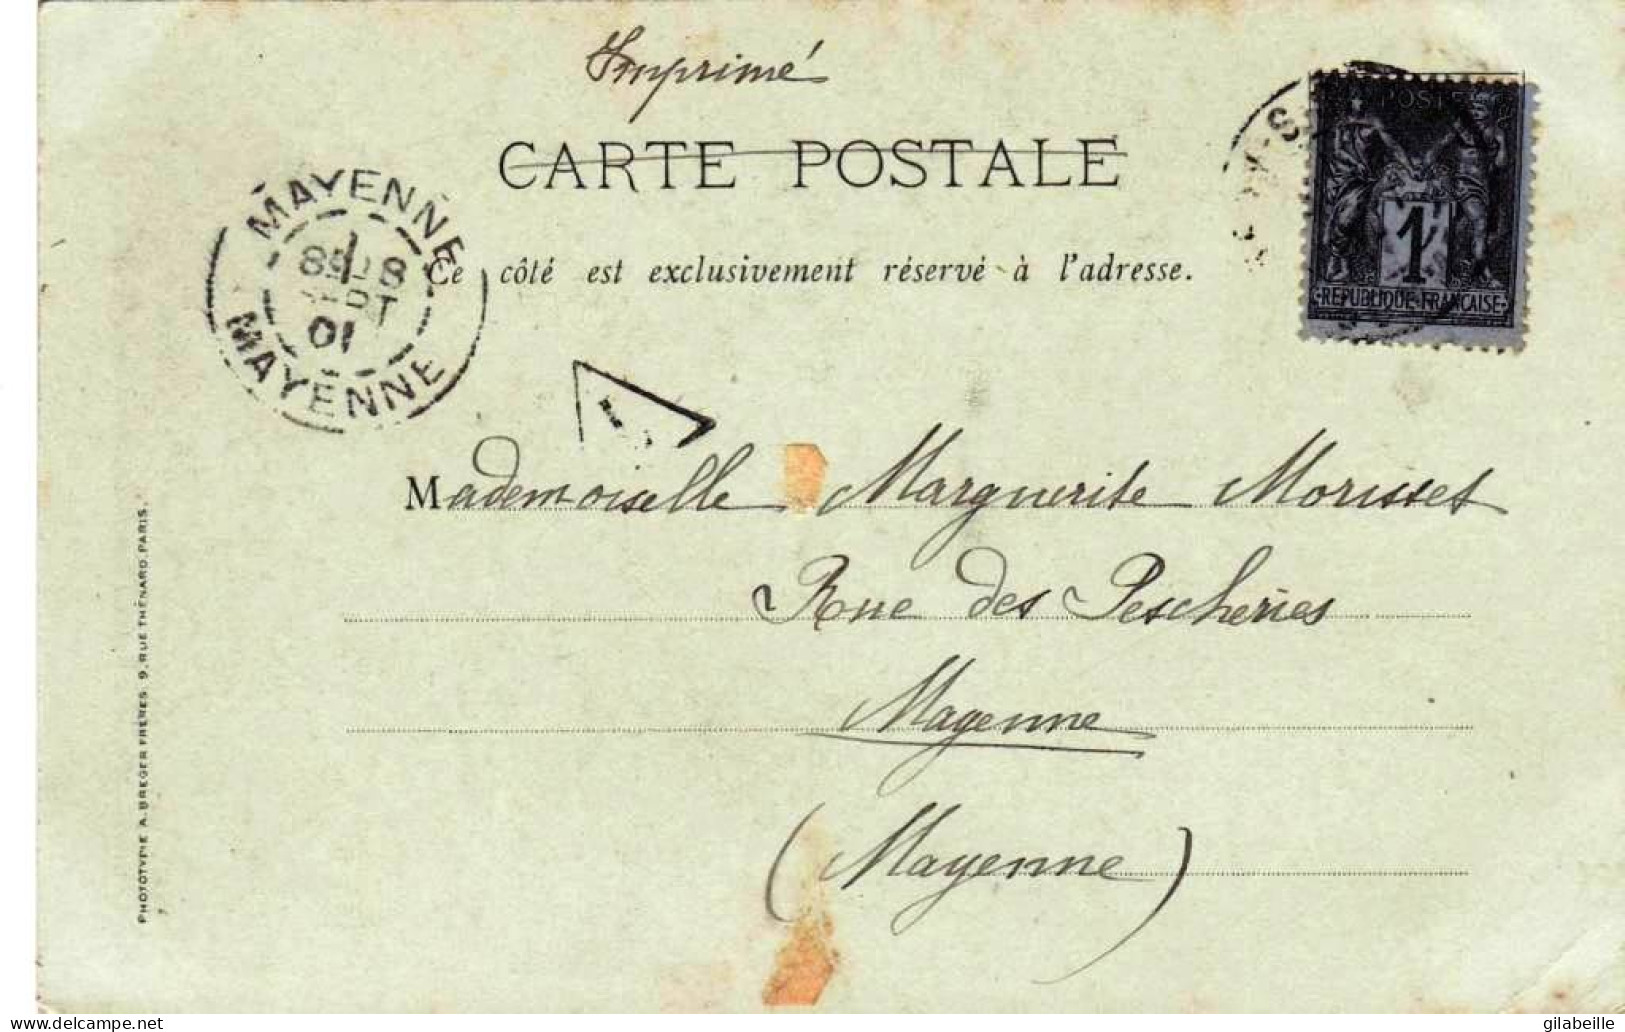 Imprimé
CARTE POSTALE
Ce côté est exclusivement réservé à l'adresse.
POSTE
1
REPUBLIQUE FRANÇAISE
MAYENNE
01
MAYENNE
Mademoiselle Marguerite Morisset
Rue des Pescheries
Mayenne
(Mayenne)
PHOTOTYPIE A. BREGER FRÈRES 9, RUE THÉNARD. PARIS.
www.delcampe.net
gilabeille